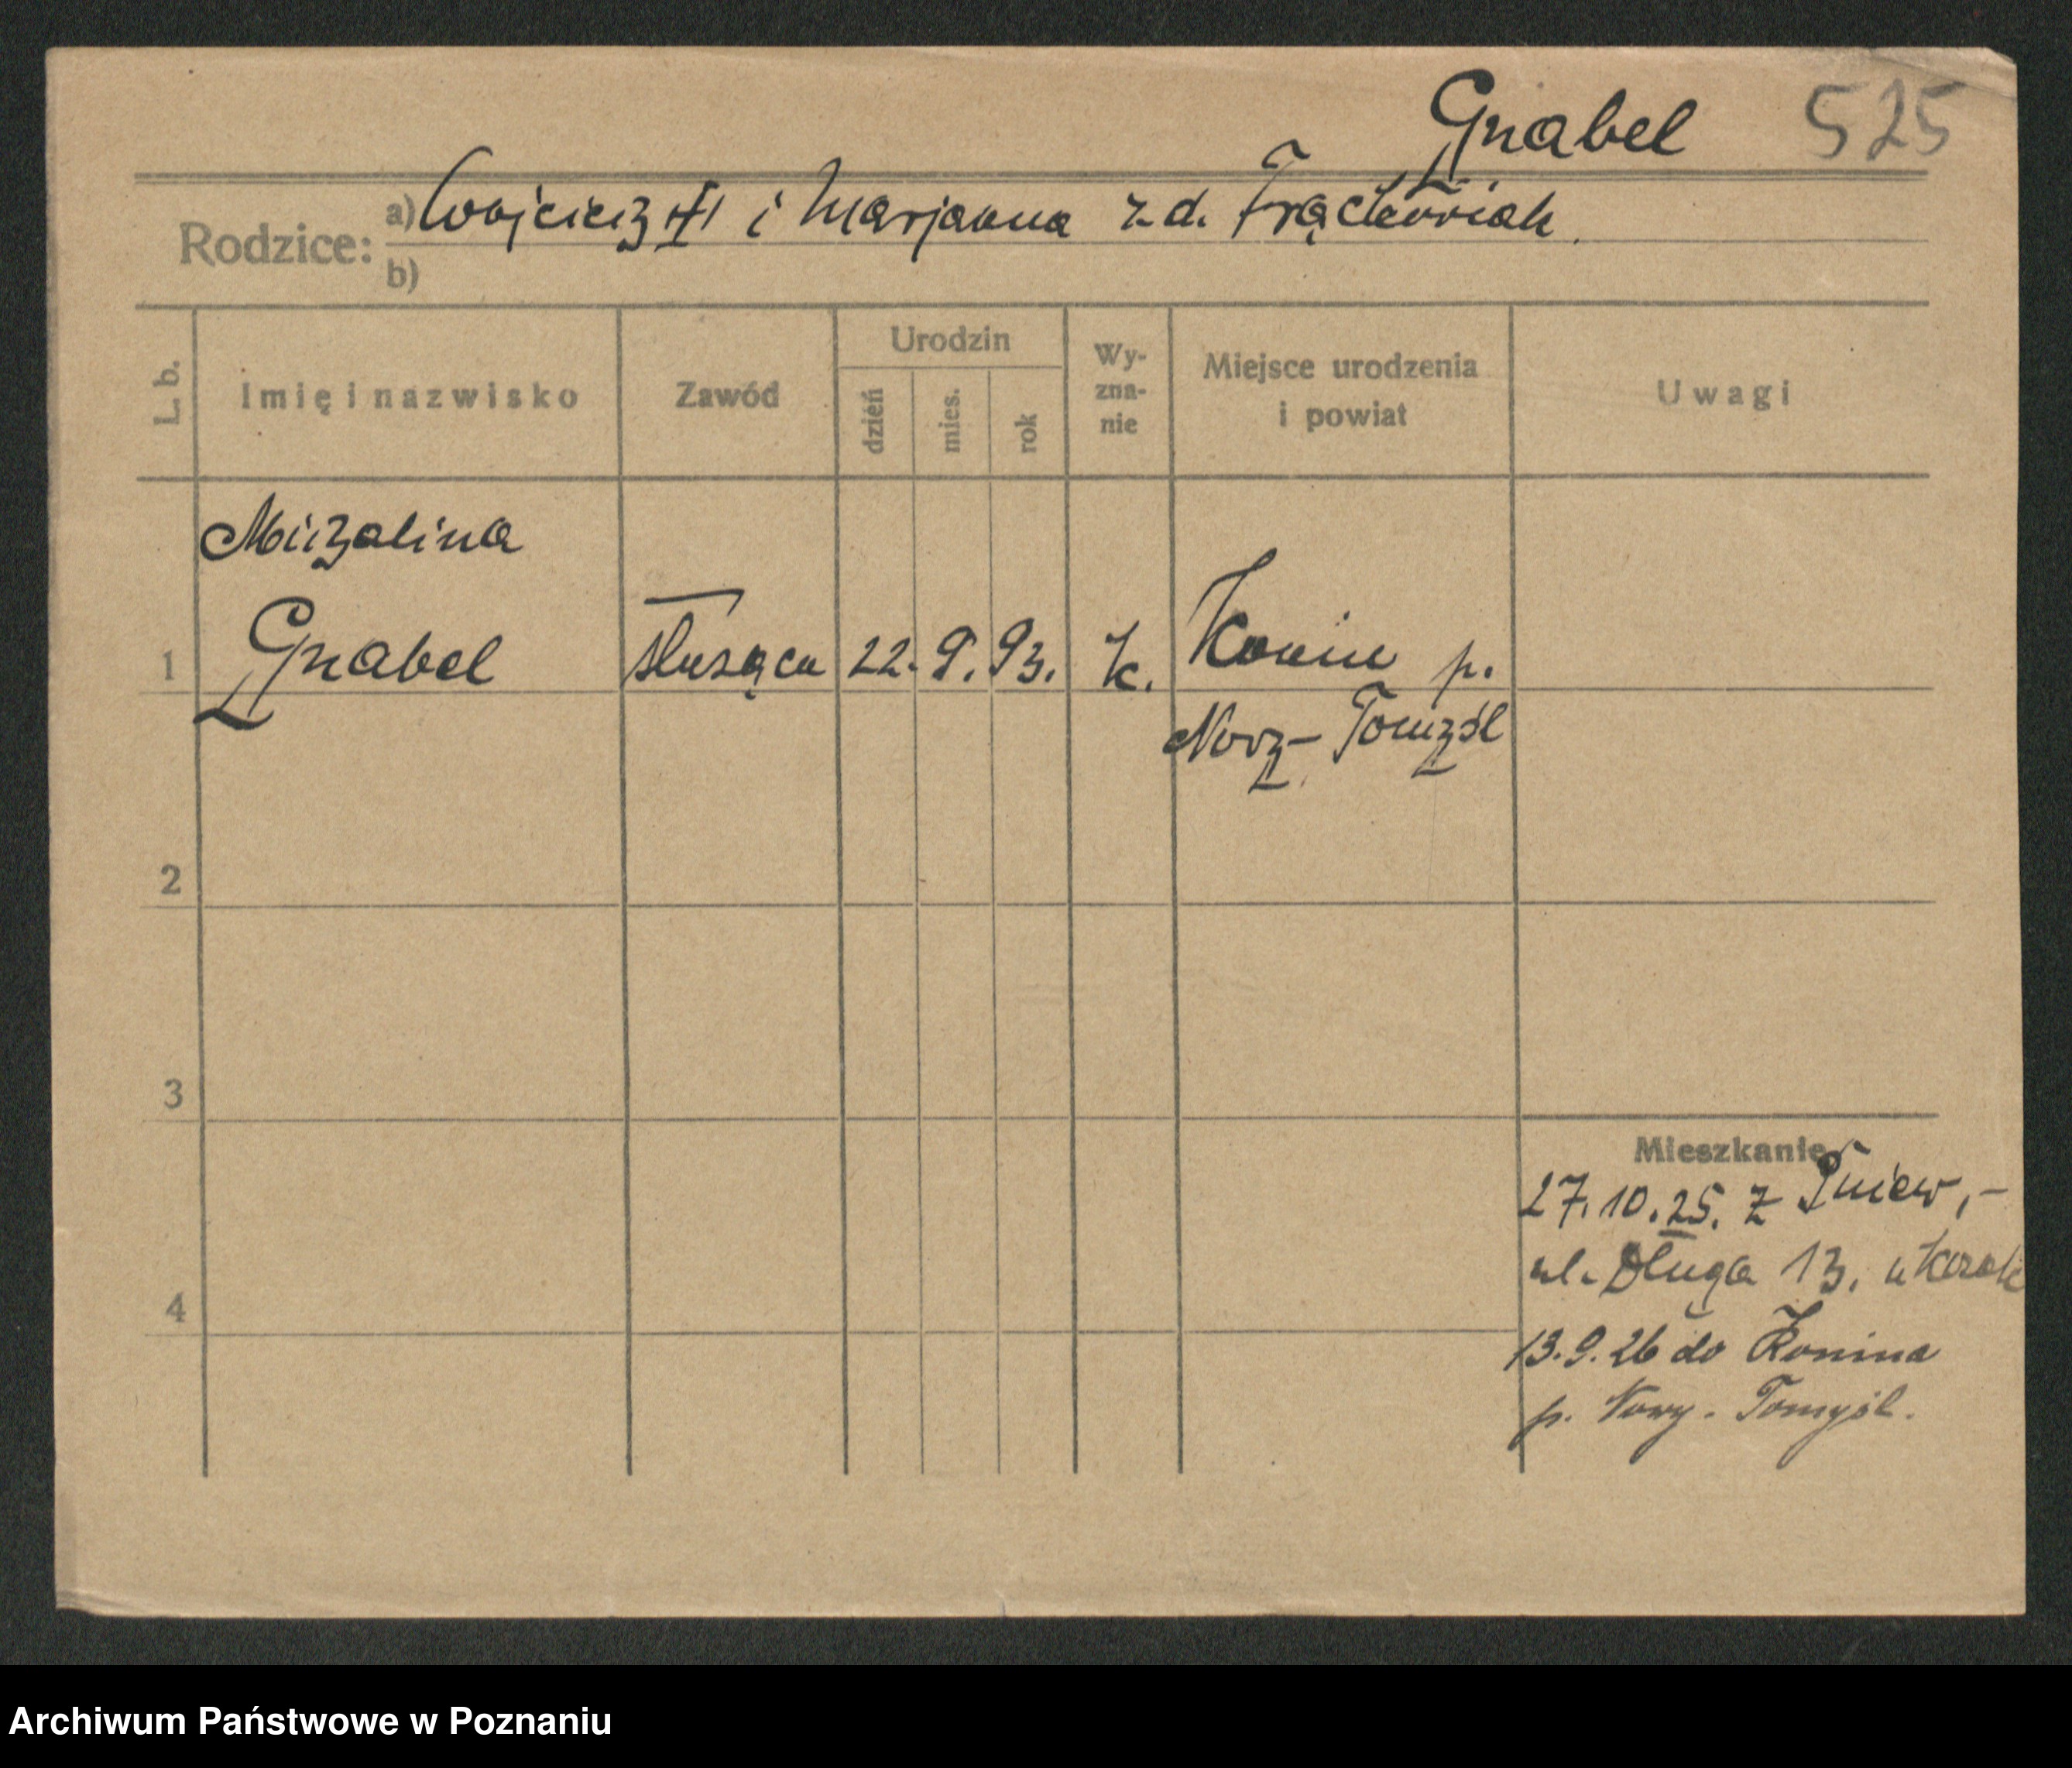 Gnabel 525
Rodzice: a) Wojciech i Marjanna z d. Frąckowiak.
b)
L. b. Imię i nazwisko Zawód Urodzin dzień mies. rok Wyznanie Miejsce urodzenia i powiat Uwagi
Gnabel służąca 22. 9. 93. k. Konin p.
1
Nowy-Tomyśl
2
3
Mieszkanie
27.10.25. z Pniew,-
ul. Długa 13. u
4
13.9.26 do Konina
p. Nowy-Tomyśl.
Archiwum Państwowe w Poznaniu